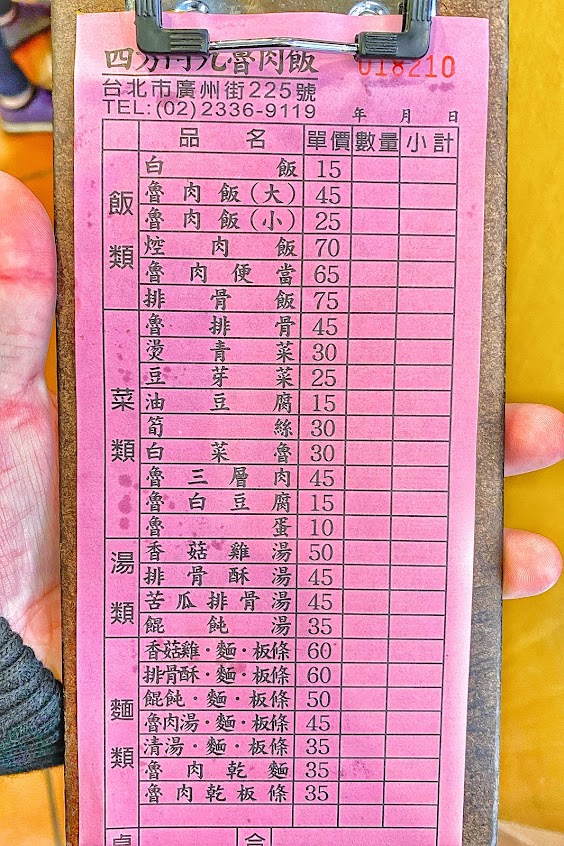 四方阿九魯肉飯
018210
台北市廣州街225號
TEL:(02)2336-9119
年 月 日
品名 單價 數量 小計
飯類
白飯 15
魯肉飯(大) 45
魯肉飯(小) 25
焢肉飯 70
魯肉便當 65
排骨飯 75
菜類
魯排骨 45
燙青菜 30
豆芽菜 25
油豆腐 15
筍絲 30
白菜魯 30
魯三層肉 45
魯白豆腐 15
魯蛋 10
湯類
香菇雞湯 50
排骨酥湯 45
苦瓜排骨湯 45
餛飩湯 35
麵類
香菇雞·麵·板條 60
排骨酥·麵·板條 60
餛飩·麵·板條 50
魯肉湯·麵·板條 45
清湯·麵·板條 35
魯肉乾麵 35
魯肉乾板條 35
合